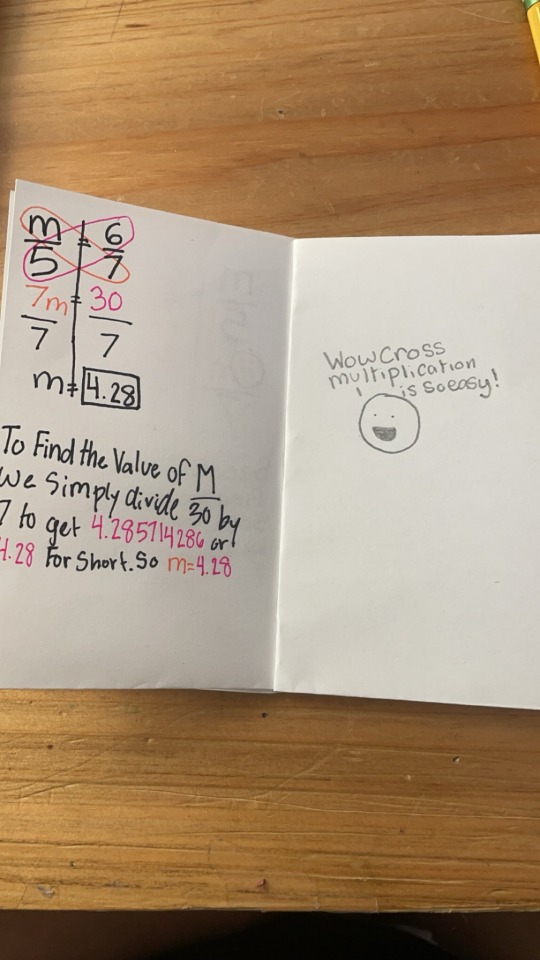 m/5 = 6/7
7m/7 = 30/7
m = 4.28
To Find the Value of M
we Simply divide 30 by
7 to get 4.285714286 or
4.28 For Short. So m=4.28
Wow Cross
multiplication
is so easy!